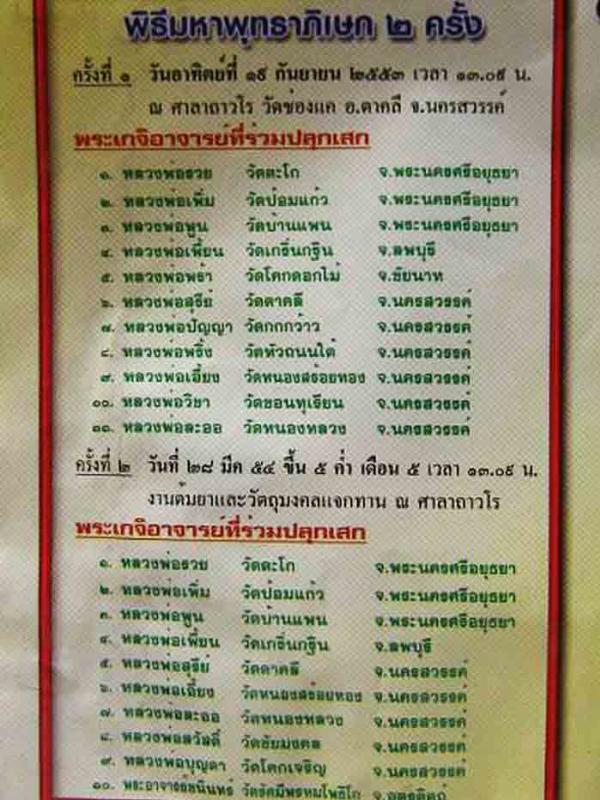 พิธีมหาพุทธาภิเษก ๒ ครั้ง
ครั้งที่ ๑ วันอาทิตย์ที่ ๑๙ กันยายน ๒๕๕๓ เวลา ๑๓.๐๙ น.
ณ ศาลาถาวโร วัดช่องแค อ.ตาคลี จ.นครสวรรค์
พระเกจิอาจารย์ที่ร่วมปลุกเสก
๑. หลวงพ่อรวย วัดตะโก จ.พระนครศรีอยุธยา
๒. หลวงพ่อเพิ่ม วัดป้อมแก้ว จ.พระนครศรีอยุธยา
๓. หลวงพ่อพูน วัดบ้านแพน จ.พระนครศรีอยุธยา
๔. หลวงพ่อเพี้ยน วัดเกริ่นกฐิน จ.ลพบุรี
๕. หลวงพ่อพร้า วัดโคกดอกไม้ จ.ชัยนาท
๖. หลวงพ่อสุรีย์ วัดตาคลี จ.นครสวรรค์
๗. หลวงพ่อปัญญา วัดกกกว้าว จ.นครสวรรค์
๘. หลวงพ่อพริ้ง วัดหัวถนนใต้ จ.นครสวรรค์
๙. หลวงพ่อเอี้ยง วัดหนองสร้อยทอง จ.นครสวรรค์
๑๐. หลวงพ่อวิชา วัดชอนทุเรียน จ.นครสวรรค์
๑๑. หลวงพ่อละออ วัดหนองหลวง จ.นครสวรรค์
ครั้งที่ ๒ วันที่ ๒๘ มีค ๕๔ ขึ้น ๕ ค่ำ เดือน ๕ เวลา ๑๓.๐๙ น.
งานต้มยาและวัตถุมงคลแจกทาน ณ ศาลาถาวโร
พระเกจิอาจารย์ที่ร่วมปลุกเสก
๑. หลวงพ่อรวย วัดตะโก จ.พระนครศรีอยุธยา
๒. หลวงพ่อเพิ่ม วัดป้อมแก้ว จ.พระนครศรีอยุธยา
๓. หลวงพ่อพูน วัดบ้านแพน จ.พระนครศรีอยุธยา
๔. หลวงพ่อเพี้ยน วัดเกริ่นกฐิน จ.ลพบุรี
๕. หลวงพ่อสุรีย์ วัดตาคลี จ.นครสวรรค์
๖. หลวงพ่อเอี้ยง วัดหนองสร้อยทอง จ.นครสวรรค์
๗. หลวงพ่อละออ วัดหนองหลวง จ.นครสวรรค์
๘. หลวงพ่อสวัสดิ์ วัดชัยมงคล จ.นครสวรรค์
๙. หลวงพ่อบุญตา วัดโคกเจริญ จ.นครสวรรค์
๑๐. พระอาจารย์ชนินทร์ วัดรัศมีพรหมโพธิโก จ.อุตรดิตถ์